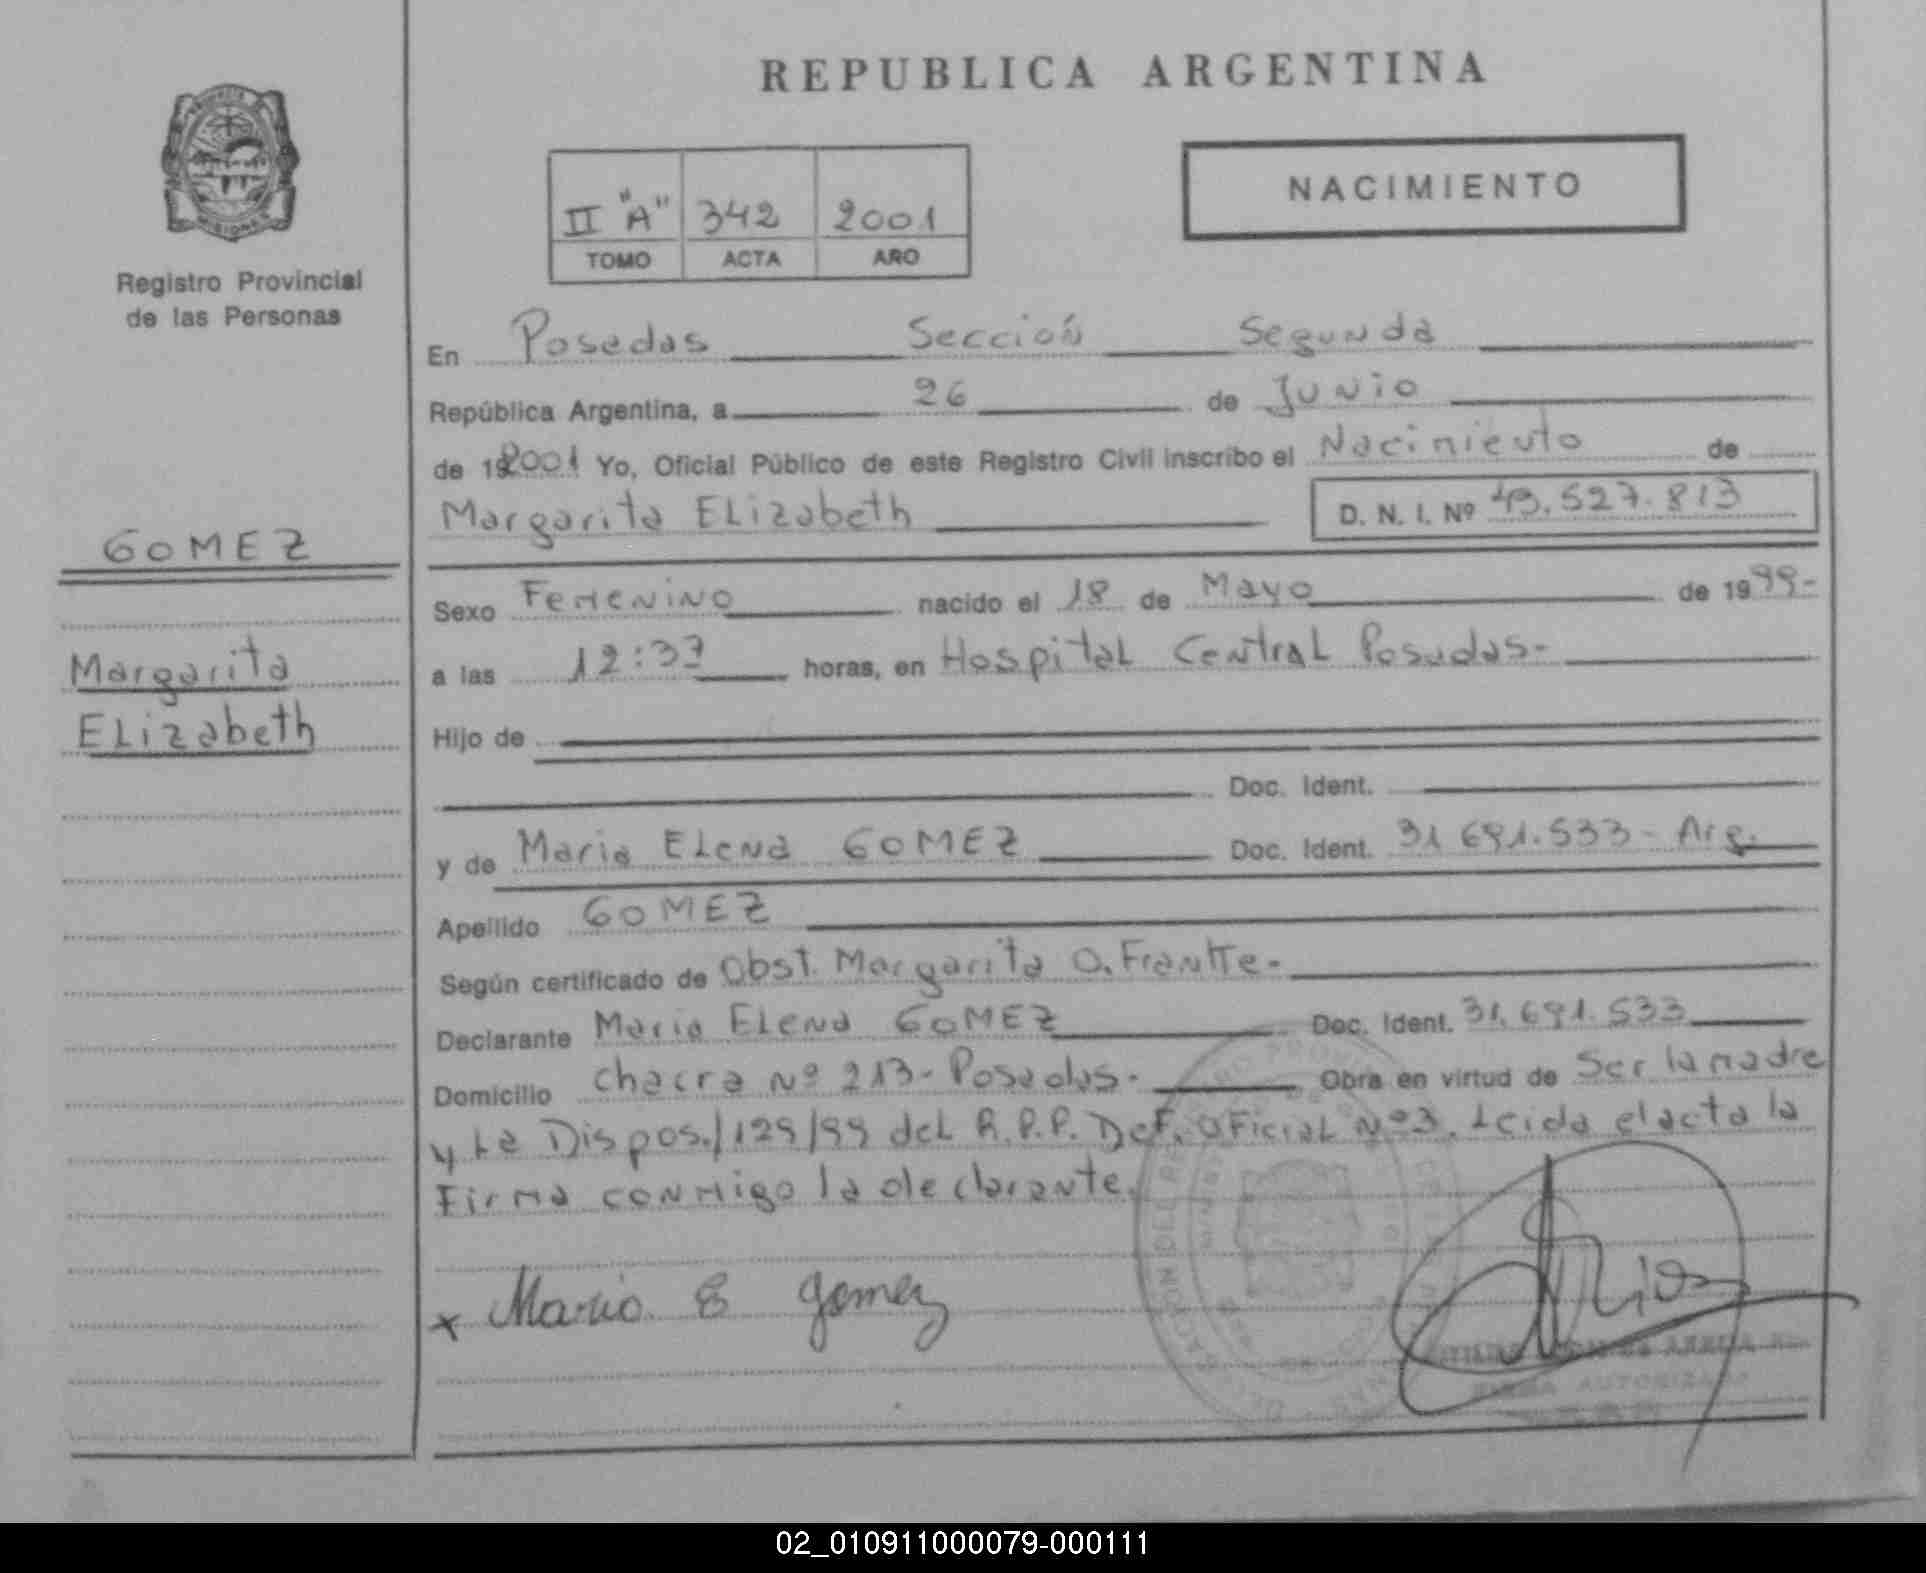 REPUBLICA ARGENTINA
NACIMIENTO
II "A" 342 2001
TOMO ACTA AÑO
PROVINCIA DE MISIONES
Registro Provincial
de las Personas
GOMEZ
Margarita
Elizabeth
En Posadas Sección Segunda
República Argentina, a 26 de Junio
de 192001 Yo, Oficial Público de este Registro Civil inscribo el Nacimiento de
Margarita Elizabeth D. N. I. Nº 43.527.813
Sexo Femenino nacido el 18 de Mayo de 1999-
a las 12:37 horas, en Hospital Central Posadas-
Hijo de
Doc. Ident.
y de Maria Elena GOMEZ Doc. Ident. 31 691.533- Arg.
Apellido GOMEZ
Según certificado de Obst. Margarita O.
Declarante Maria Elena GOMEZ Doc. Ident. 31.691.533
Domicilio chacra Nº 213- Posadas- Obra en virtud de Ser la madre
y La Dispos./129/99 del R.P.P. Def. Oficial Nº3. Leida el acta la
Firma conmigo la declarante.
x Maria E Gomez
FIRMA AUTORIZADA
02_010911000079-000111